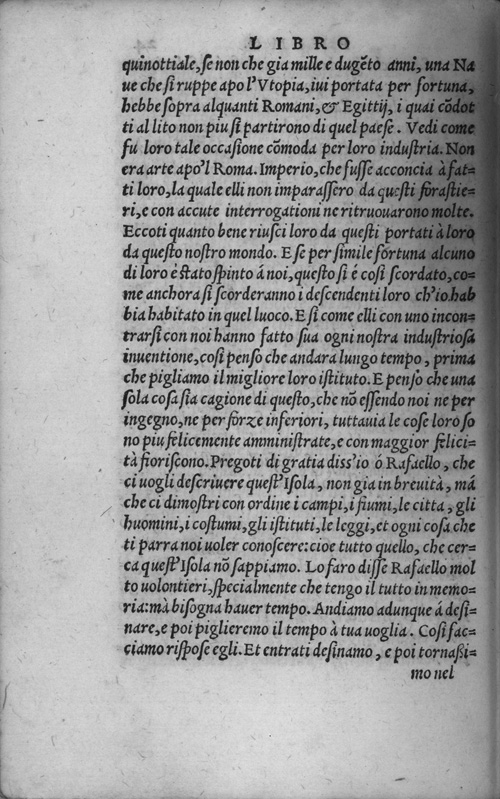 LIBRO
quinottiale, se non che gia mille e dugẽto anni, una Na
ue che si ruppe apo l'Vtopia, iui portata per fortuna,
hebbe sopra alquanti Romani, & Egittij, i quai cõdot
ti al lito non piu si partirono di quel paese. Vedi come
fu loro tale occasione cõmoda per loro industria. Non
era arte apo'l Roma. Imperio, che fusse acconcia à fat=
ti loro, la quale elli non imparassero da questi forastie=
ri, e con accute interrogationi ne ritruouarono molte.
Eccoti quanto bene riusci loro da questi portati à loro
da questo nostro mondo. E se per simile fortuna alcuno
di loro é stato spinto á noi, questo si é cosi scordato, co=
me anchora si scorderanno i descendenti loro ch'io hab
bia habitato in quel luoco. E si come elli con uno incon=
trarsi con noi hanno fatto sua ogni nostra industriosa
inuentione, cosi penso che andara lungo tempo, prima
che pigliamo il migliore loro istituto. E penso che una
sola cosa sia cagione di questo, che nõ essendo noi ne per
ingegno, ne per forze inferiori, tuttauia le cose loro so
no piu felicemente amministrate, e con maggior felici=
tà fioriscono. Pregoti di gratia diss'io ó Rafaello, che
ci uogli descriuere quest'Isola, non gia in breuità, má
che ci dimostri con ordine i campi, i fiumi, le citta, gli
huomini, i costumi, gli istituti, le leggi, et ogni cosa che
ti parra noi uoler conoscere: cioe tutto quello, che cer=
ca quest'Isola nõ sappiamo. Lo faro disse Rafaello mol
to uolontieri, specialmente che tengo il tutto in memo=
ria: mà bisogna hauer tempo. Andiamo adunque á desi=
nare, e poi piglieremo il tempo à tua uoglia. Cosi fac=
ciamo rispose egli. Et entrati desinamo, e poi tornassi=
mo nel